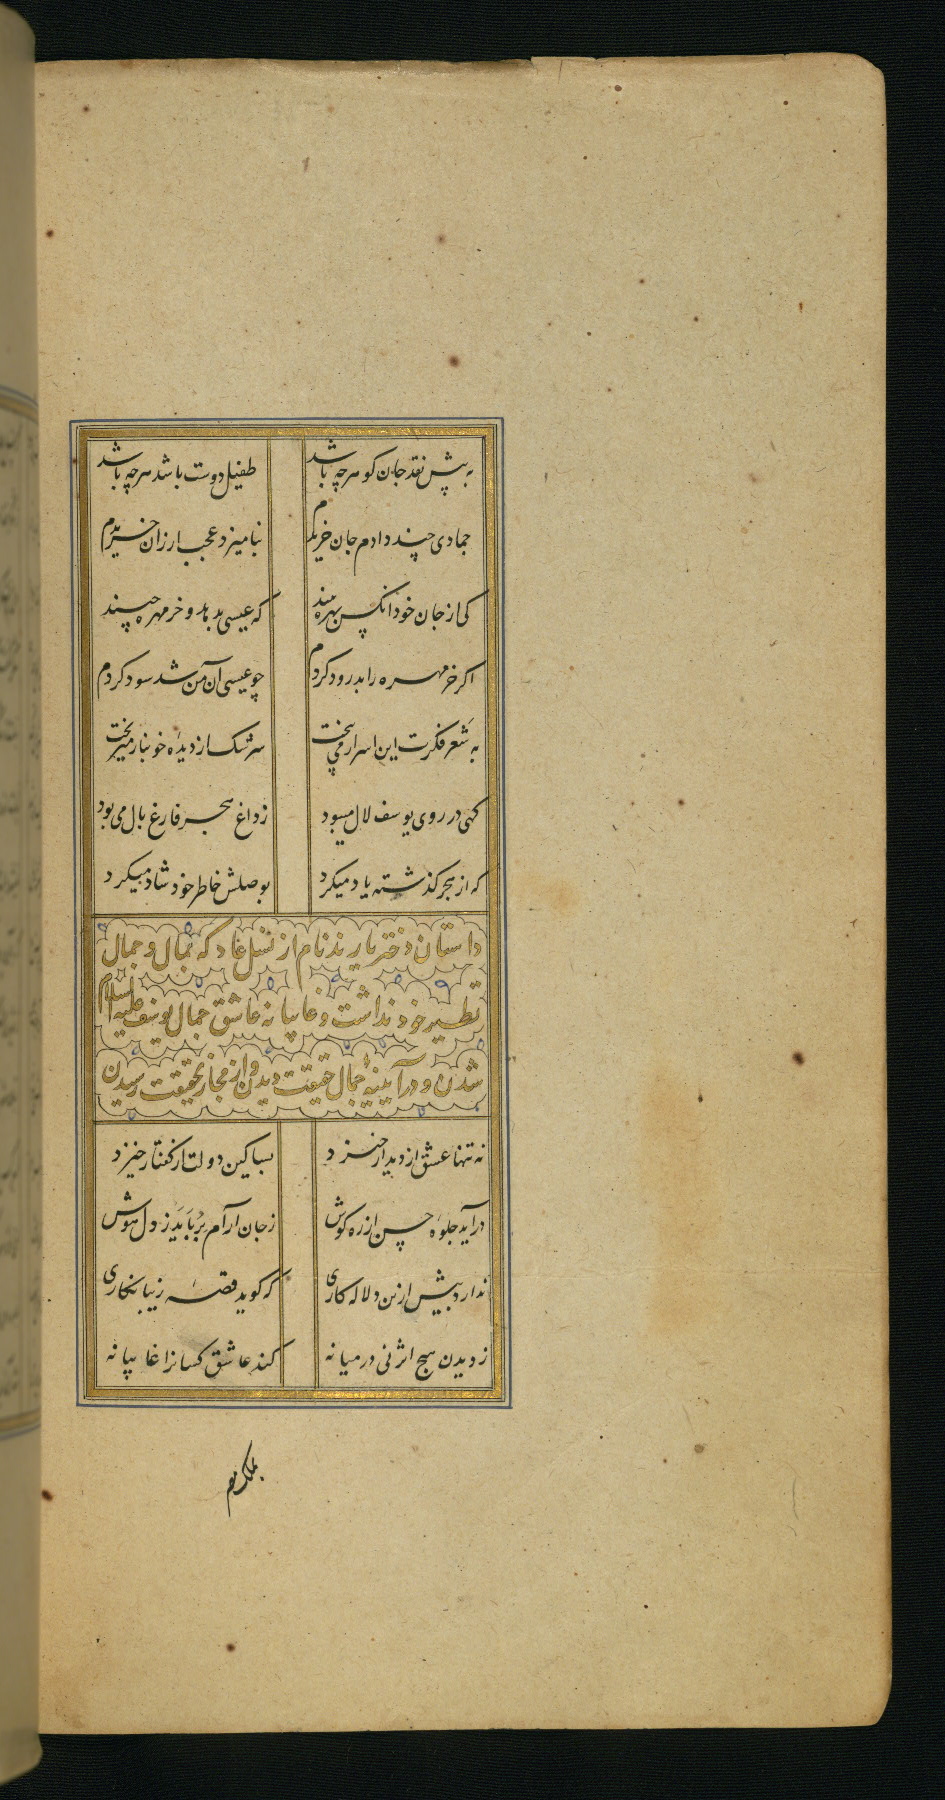 به پیش نقد جان کو هرچه باشد طفیل دوست باشد هرچه باشد
جمادی چند دادم جان خریدم بنامیزد عجب ارزان خریدم
کی از جان خود آنکس بهره بیند که عیسی بدهد و خرمهره چیند
اکر خرمهره را بدرود کردم چو عیسی آن من شد سود کردم
به شعر فکرت این اسرار می‌بیخت سرشک از دیدهٔ خونبار میریخت
کهی در روی یوسف لال میبود ز داغ هجر فارغ بال می بود
که از هجر کذشته یاد میکرد بوصلش خاطر خود شاد میکرد
داستان دختر بازیغه نام از نسل عاد که بمال و جمال
نظیر خود نداشت و غایبانه عاشق جمال یوسف علیه السلام
شدن و در آیینه جمال حقیقت دیدن و از مجاز بحقیقت رسیدن
نه تنها عشق از دیدار خیزد بسا کین دولت از کفتار خیزد
در آید جلوهٔ حسن از ره کوش ز جان آرام برباید ز دل هوش
ندارد بیش ازین دلاله کاری که کوید قصهٔ زیبا نکاری
ز دیدن هیچ اثر نی در میانه کند عاشق کسانرا غایبانه